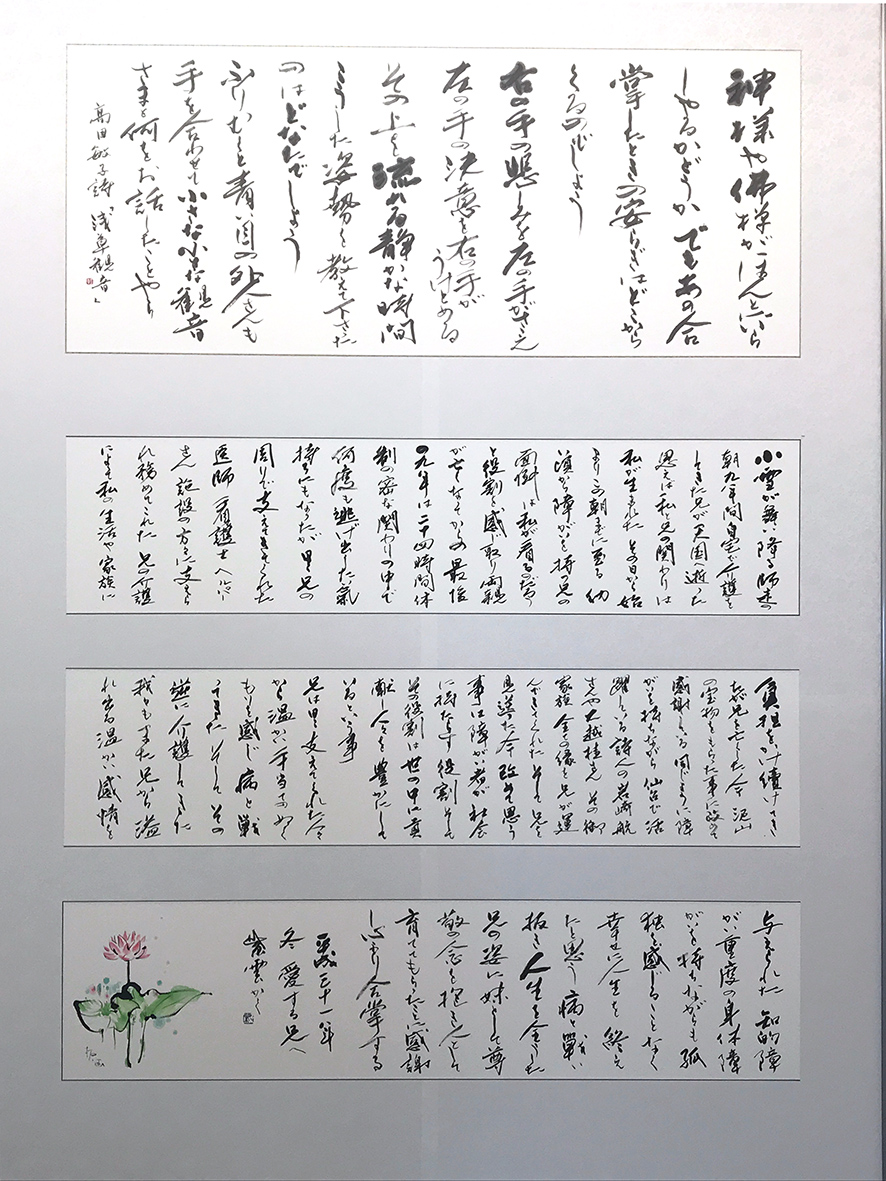 神様や佛様がほんとにいら
っしゃるかどうか でもあの合
掌したときの安らぎはどこから
くるのでしょう
右の手の悲しみを左の手がささえ
左の手の決意を右の手が
うけとめる
その上を流れる静かな時間
こうした姿勢を教えて下さった
のはどなたでしょう
ふりむくと青い目の外人さんも
手を合わせて小さな小さな観音
さまと何をお話したことやら
高田敏子詩「浅草観音」
小雪が舞い降る師走の
朝九年間自宅で介護を
してきた兄が天国へ逝った
思えば私と兄の関わりは
私が生まれたその日から始
まりこの朝までに至る 幼
い頃から障がいを持つ兄の
面倒は私が看るのだろう
と役割を感じ取り両親
が亡くなってからの最後
の九年は二十四時間体
制の密な関わりの中で
何度も逃げ出したい氣
持ちにもなったが 甲と兄の
周りで支えてきてくれた
医師 看護士 ヘルパー
さん 施設の方々に支えら
れ務めてこれた 兄の介護
によって私の生活や家族に
負担をかけ続けてき
が兄を亡くした今 沢山
の宝物をもらった事に改めて
感謝している 同じように障
がいを持ちながら 仙台で活
躍している詩人の岩崎航
さんや大越桂さん その御
家族 全ての縁を兄が運
んできてくれた そして兄を
見送った今 改めて思う
事は障がい者が社会
に指し示す役割 そして
その役割は世の中に貢
献し人々を豊かにして
いるという事
兄は甲と支えてくれた人々
から温かい手当てぬく
もりを感じ 病と戦
ってきた そして その
逆に介護してきた
我々もまた兄から溢
れ出る温かい感情を
与えられた 知的障
がい 重度の身体障
がいを持ちながらも孤
独を感じることなく
幸せに人生を終え
たと思う 病と戦い
抜き人生を全うした
兄の姿に妹として尊
敬の念を抱き人として
育ててもらったことに感謝
し心より合掌する
平成三十一年
冬 愛する兄へ
紫雲かく